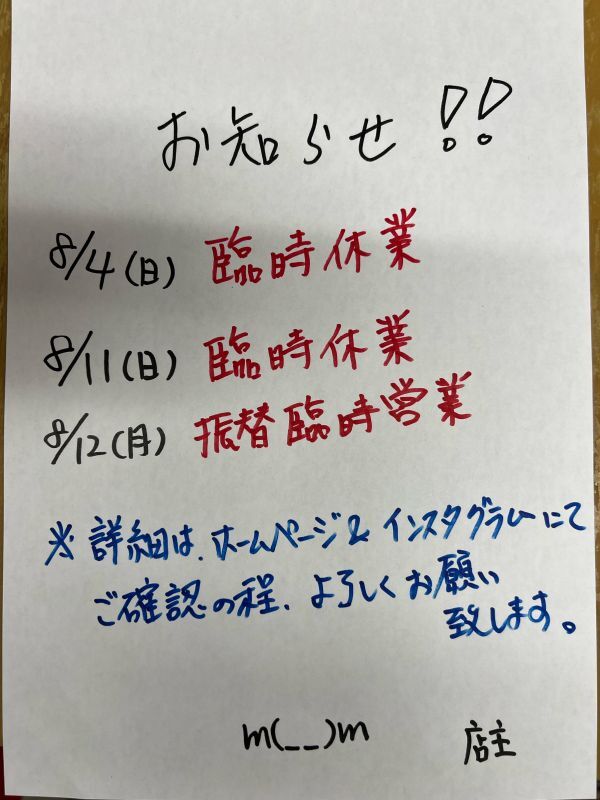 お知らせ!!
8/4(日) 臨時休業
8/11(日) 臨時休業
8/12(月) 振替臨時営業
※詳細は、ホームページ&インスタグラムにて
ご確認の程、よろしくお願い
致します。
m(__)m 店主